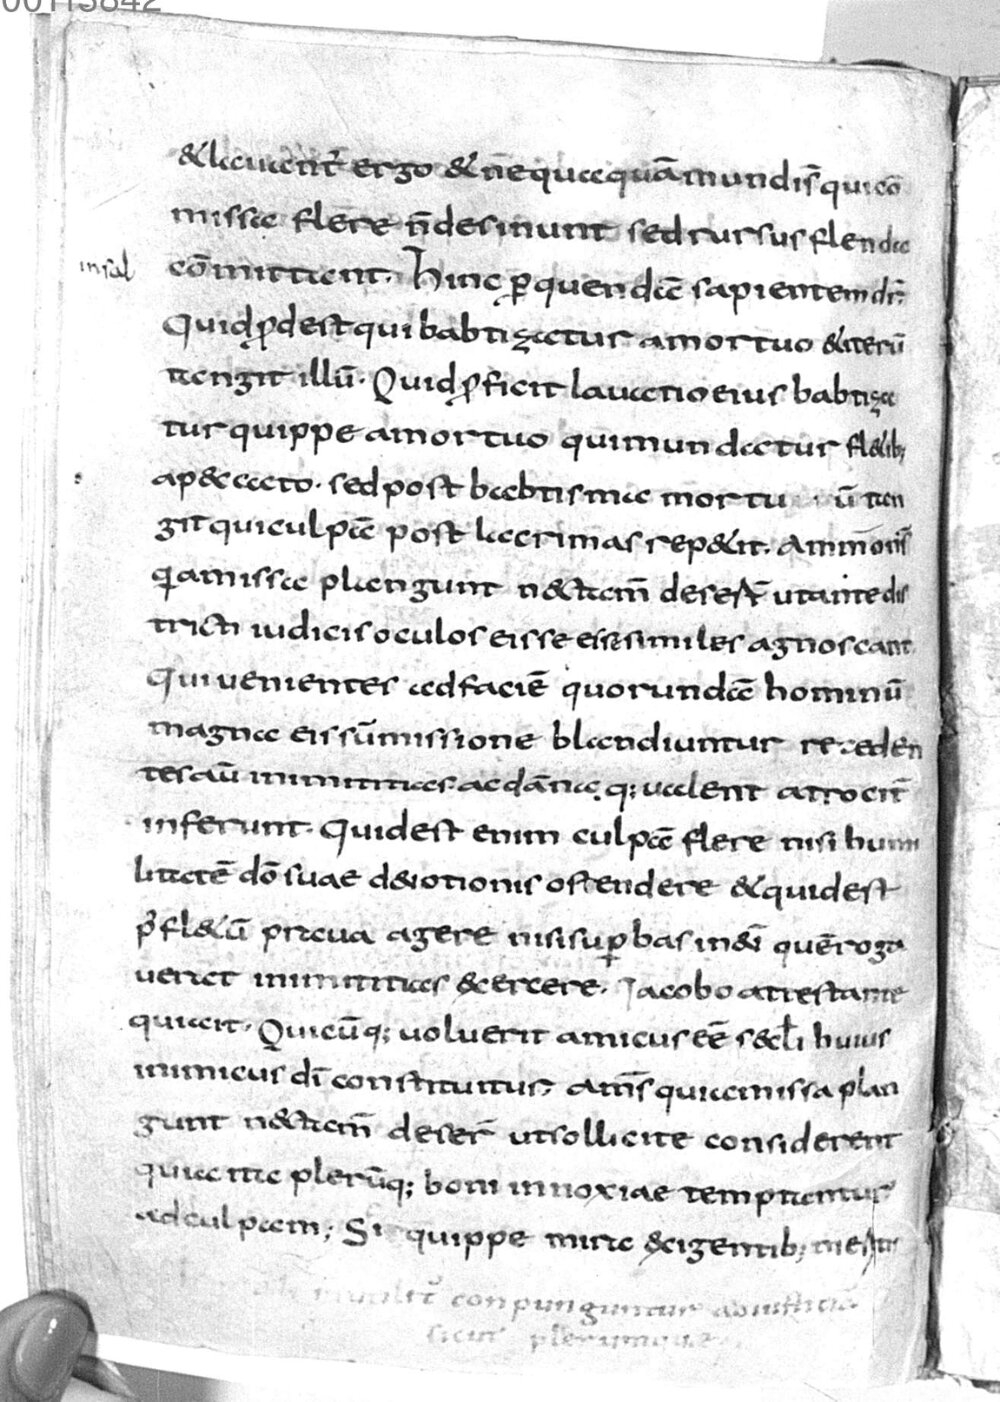 00113842
&lauant̄ ergo & nequaquā mundis̄ qui cō
missa flere n̄ desinunt sed rursus flenda
in sal
cōmittant. Hinc ꝑ quendā sapientem dr̄.
Quid ꝓdest qui babtizatur amortuo & iterū
tangit illū. Quid ꝓficit lauatio eius babtiza
tur quippe amortuo qui mundatur fl&ib;
a p&cato. sed post babtisma mortu ū tan
git qui culpā post lacrimas rep&it.
missa plangunt n& tam̄ deser̄ ut ante dis
tricti iudicis oculos eis se esse similes agnoscant
Qui uenientes ad faciē quorundā hominū
magna eis sūmissione blandiuntur receden
tes aū inimititias ac dāna q; ualent atrocit̄
inferunt. Quid est enim culpā flere nisi humi
litatē dō suae deuotionis ostendere & quid est
p̄ fl&ū praua agere nisi sup̱bas in dī quē roga
uerat inimititias &ercere. Jacobo attestante
qui ait. Quicūq; uoluerit amicus eē s&cl̄i huius
inimicus dī constituitur. Am̄s qui amissa plan
gunt n& tam̄ deser̄ ut sollicite considerent
quia ita plerūq; boni innoxiae temptantur
ad culpam; Si quippe
conpunguntur
sicut plerumque